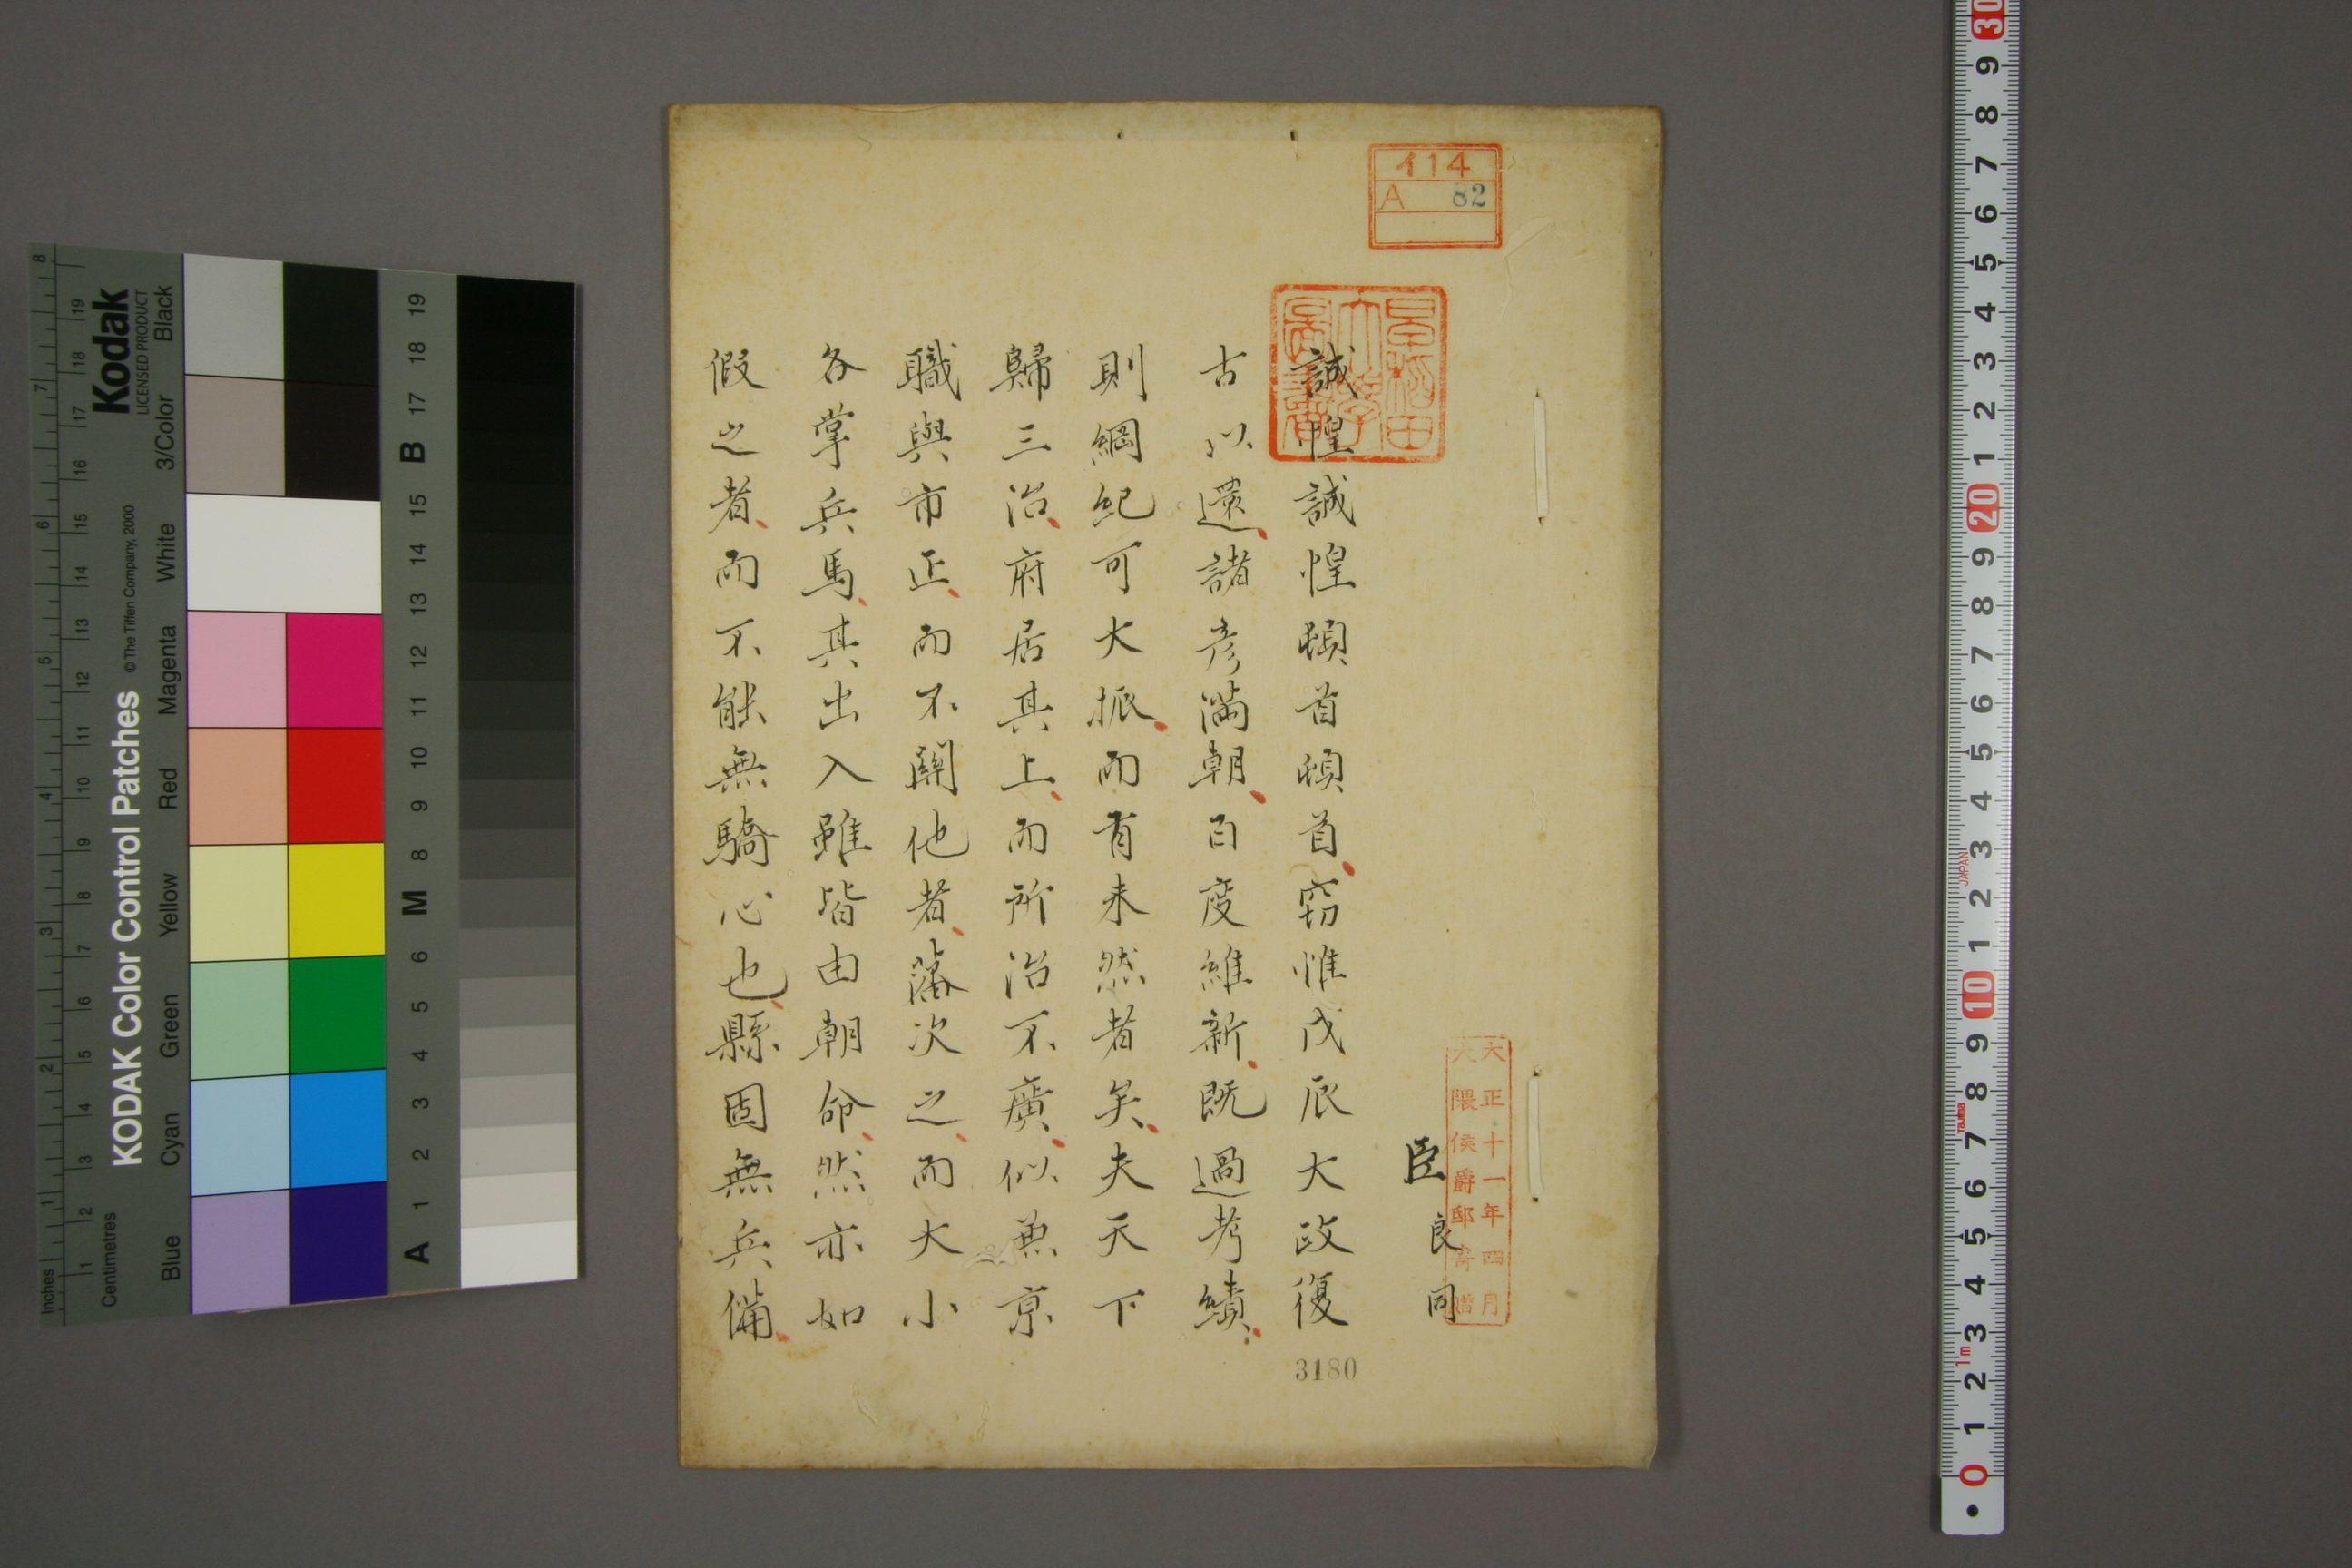 臣 良同
誠惶誠惶頓首頓首窃惟戊辰大政復
古以還諸彦満朝百度維新既過考績
則綱紀可大振而有未然者矣夫天下
歸三治府居其上而所治不廣似兼京
職與市正而不關他者藩次之而大小
各掌兵馬其出入雖皆由朝命然亦如
假之者而不能無驕心也縣固無兵備
イ14
A 82
早稲田大學圖書
大正十一年四月
大隈侯爵邸寄贈
3180
Kodak
LICENSED PRODUCT
KODAK Color Control Patches
© The Tiffen Company, 2000
Black
3/Color
White
Magenta
Red
Yellow
Green
Cyan
Blue
Inches
Centimetres
1 2 3 4 5 6 7 8
1 2 3 4 5 6 7 8 9 10 11 12 13 14 15 16 17 18 19
A 1 2 3 4 5 6 M 8 9 10 11 12 13 14 15 B 17 18 19
30 9 8 7 6 5 4 3 2 1 20 9 8 7 6 5 4 3 2 1 10 9 8 7 6 5 4 3 2 1 0
JAPAN
1m